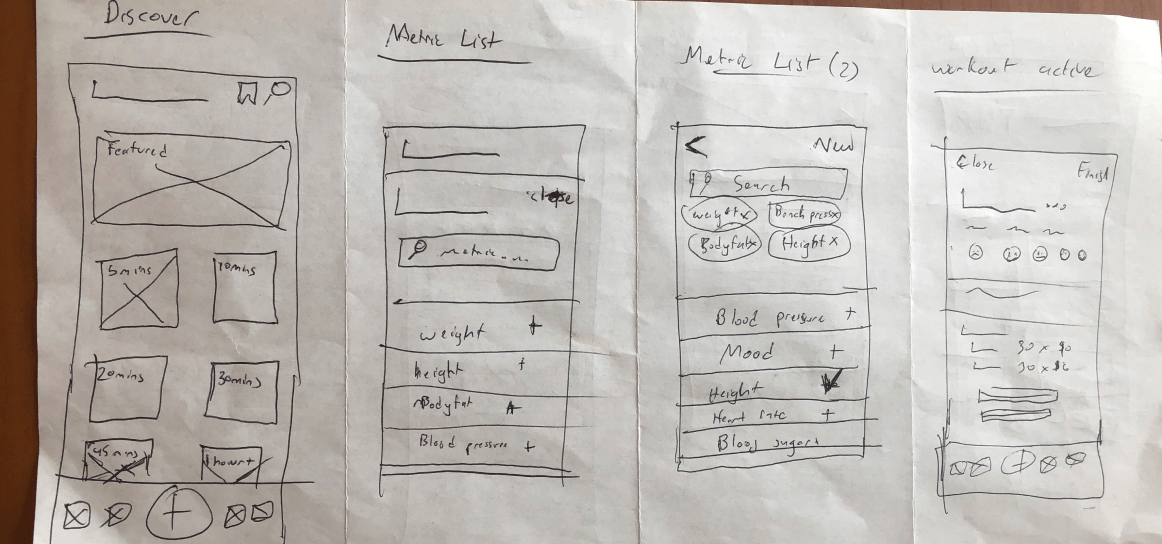 Discover
Featured
5 mins
10 mins
20 mins
30 mins
45 mins
1 hour +
Metric List
close
metric....
weight +
height +
Bodyfat +
Blood pressure +
Metric List (2)
< New
Search
weight x
Bench press x
Bodyfat x
Height x
Blood pressure +
Mood +
Height
Heart rate +
Blood sugar
workout active
Close
Finish
30 x 90